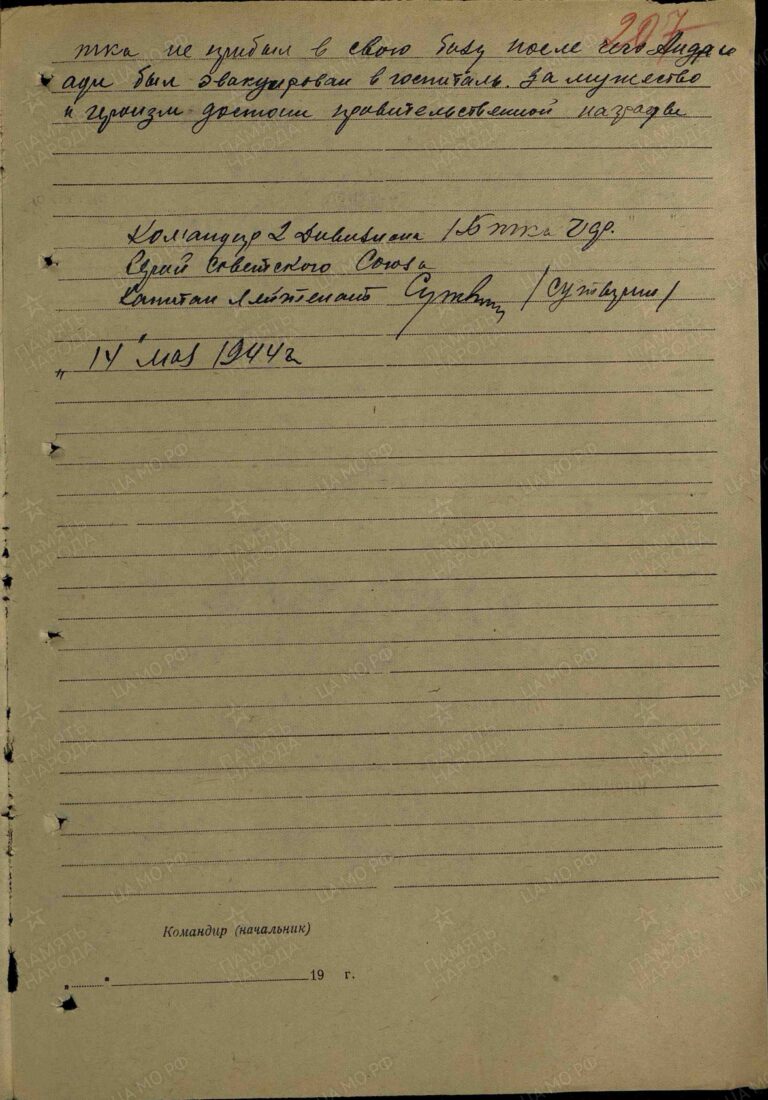 207
тка не прибыл в свою базу после чего Андрю
ади был эвакуирован в госпиталь. За мужество
и героизм достоин правительственной награды
Командир 2 Дивизиона 1 Б тка ЧФ.
Герой Советского Союза
Капитан Лейтенант
"14" мая 1944 г.
Командир (начальник)
19 г.
ПАМЯТЬ НАРОДА
ЦА МО РФ